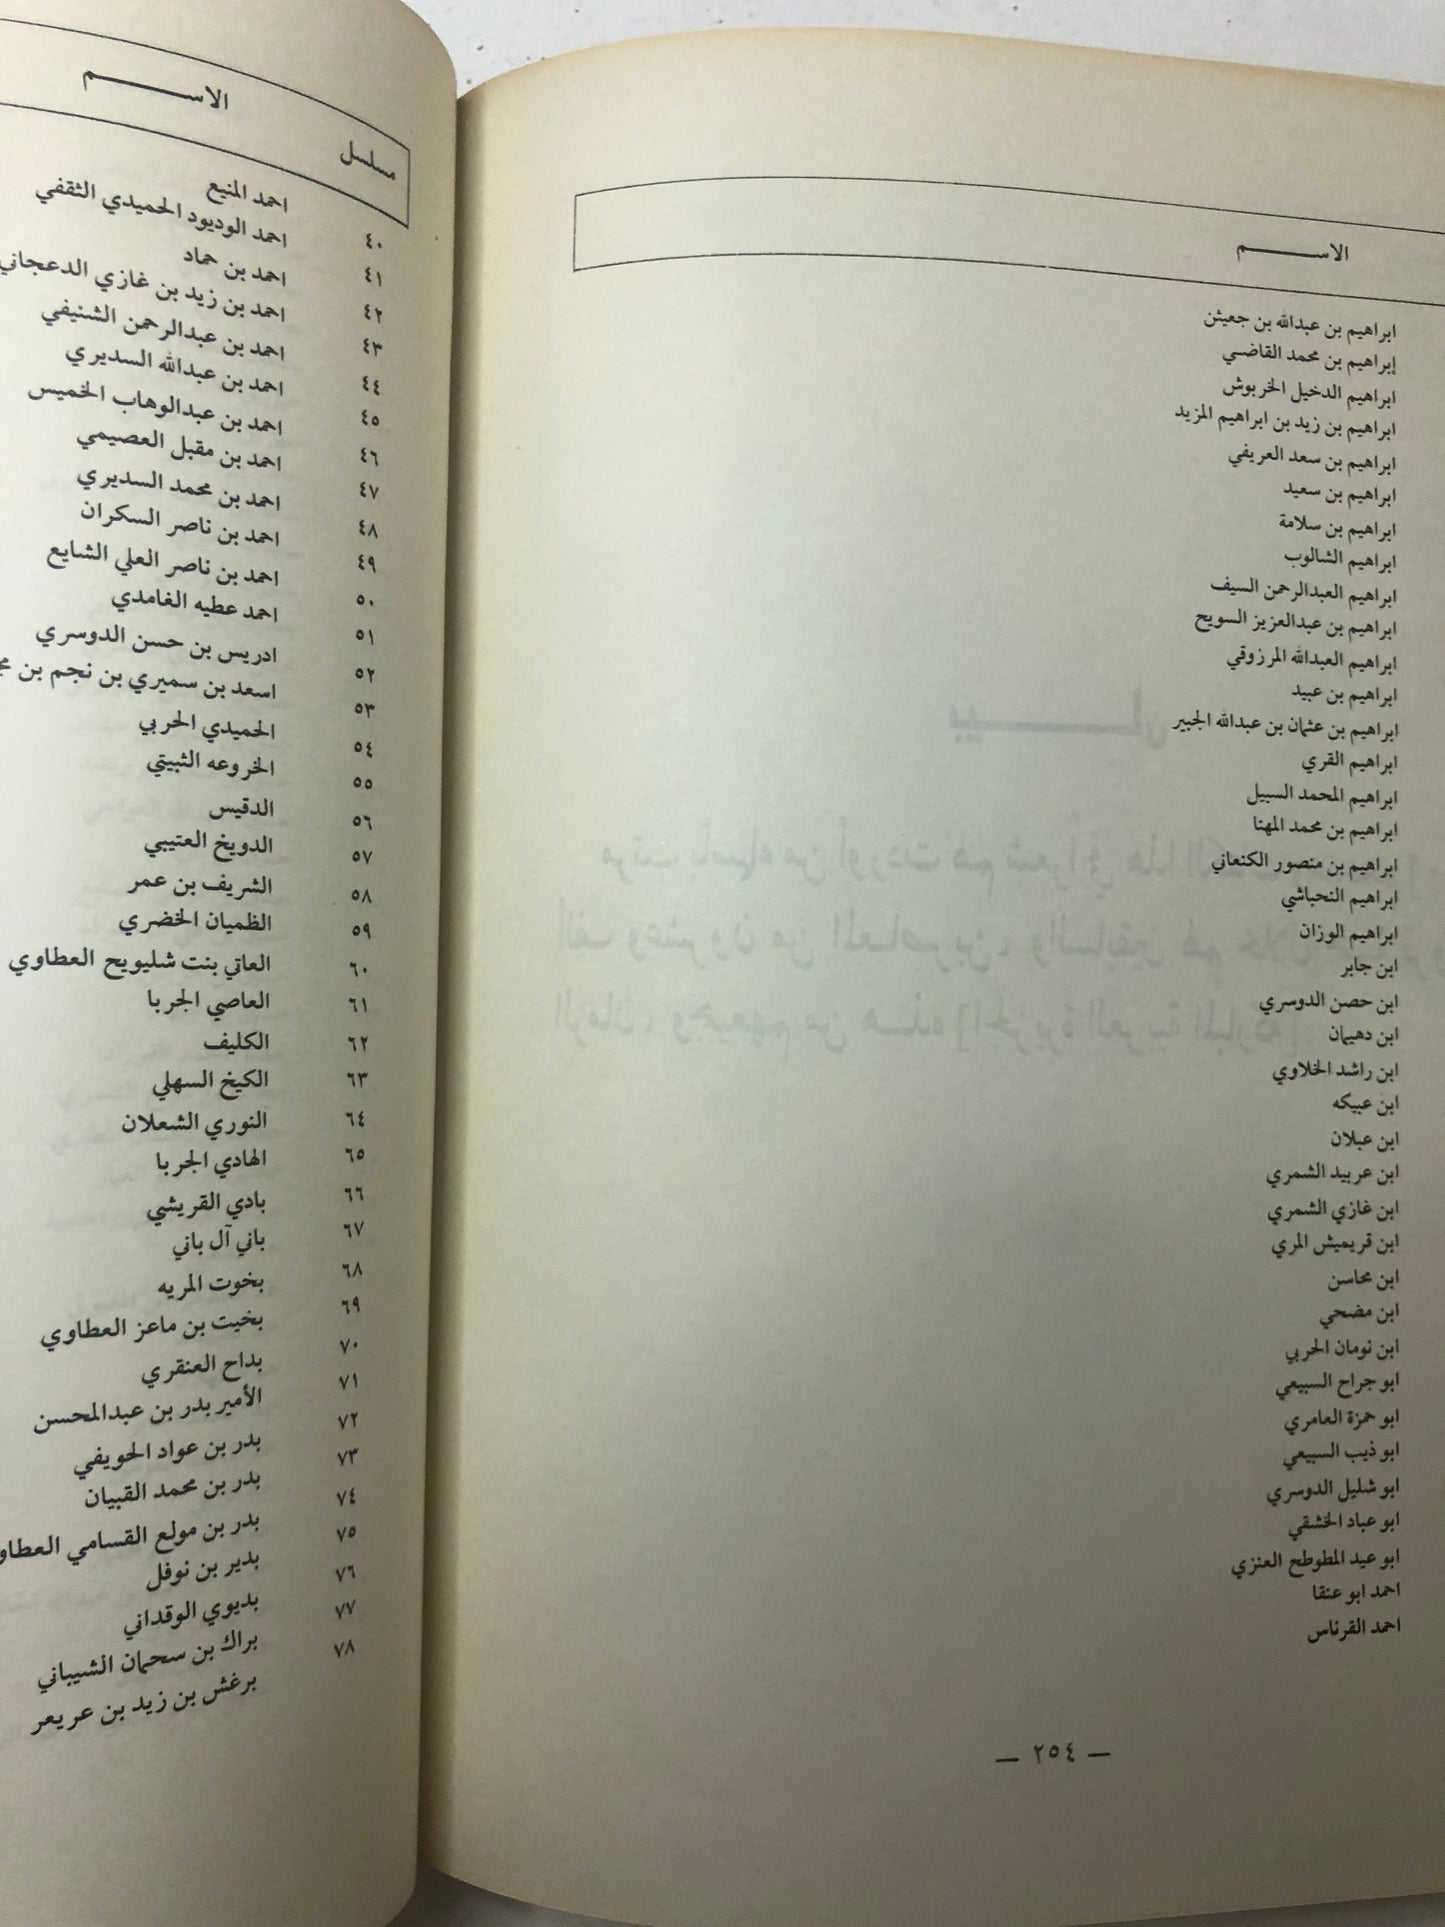 الاســـــم
ابراهيم بن عبدالله بن جعيثن
إبراهيم بن محمد القاضي
ابراهيم الدخيل الخربوش
ابراهيم بن زيد بن ابراهيم المزيد
ابراهيم بن سعد العريفي
ابراهيم بن سعيد
ابراهيم بن سلامة
ابراهيم الشالوب
ابراهيم العبدالرحمن السيف
ابراهيم بن عبدالعزيز السويح
ابراهيم العبدالله المرزوقي
ابراهيم بن عبيد
ابراهيم بن عثمان بن عبدالله الجبير
ابراهيم القري
ابراهيم المحمد السبيل
ابراهيم بن محمد المهنا
ابراهيم بن منصور الكنعاني
ابراهيم النحباشي
ابراهيم الوزان
ابن جابر
ابن حصن الدوسري
ابن دهيمان
ابن راشد الخلاوي
ابن عبيكه
ابن عبلان
ابن عربيد الشمري
ابن غازي الشمري
ابن قريميش المري
ابن محاسن
ابن مضحي
ابن نومان الحربي
ابو جراح السبيعي
ابو حمزة العامري
ابو ذيب السبيعي
ابو شليل الدوسري
ابو عباد الخشقي
ابو عيد المطوطح العنزي
احمد ابو عنقا
احمد القرناس
— ٢٥٤ —
مسلسل الاســـــم
احمد المنيع
٤٠ احمد الوديود الحميدي الثقفي
٤١ احمد بن حماد
٤٢ احمد بن زيد بن غازي الدعجاني
٤٣ احمد بن عبدالرحمن الشنيفي
٤٤ احمد بن عبدالله السديري
٤٥ احمد بن عبدالوهاب الخميس
٤٦ احمد بن مقبل العصيمي
٤٧ احمد بن محمد السديري
٤٨ احمد بن ناصر السكران
٤٩ احمد بن ناصر العلي الشايع
٥٠ احمد عطيه الغامدي
٥١ ادريس بن حسن الدوسري
٥٢ اسعد بن سميري بن نجم بن
٥٣ الحميدي الحربي
٥٤ الخروعه الثبيتي
٥٥ الدقيس
٥٦ الدويخ العتيبي
٥٧ الشريف بن عمر
٥٨ الظميان الخضري
٥٩ العاتي بنت شليويح العطاوي
٦٠ العاصي الجربا
٦١ الكليف
٦٢ الكيخ السهلي
٦٣ النوري الشعلان
٦٤ الهادي الجربا
٦٥ بادي القريشي
٦٦ باني آل باني
٦٧ بخوت المريه
٦٨ بخيت بن ماعز العطاوي
٦٩ بداح العنقري
٧٠ الأمير بدر بن عبدالمحسن
٧١ بدر بن عواد الحويفي
٧٢ بدر بن محمد القبيان
٧٣ بدر بن مولع القسامي
٧٤ بدير بن نوفل
٧٥ بديوي الوقداني
٧٦ براك بن سحمان الشيباني
٧٧ برغش بن زيد بن عريعر
٧٨